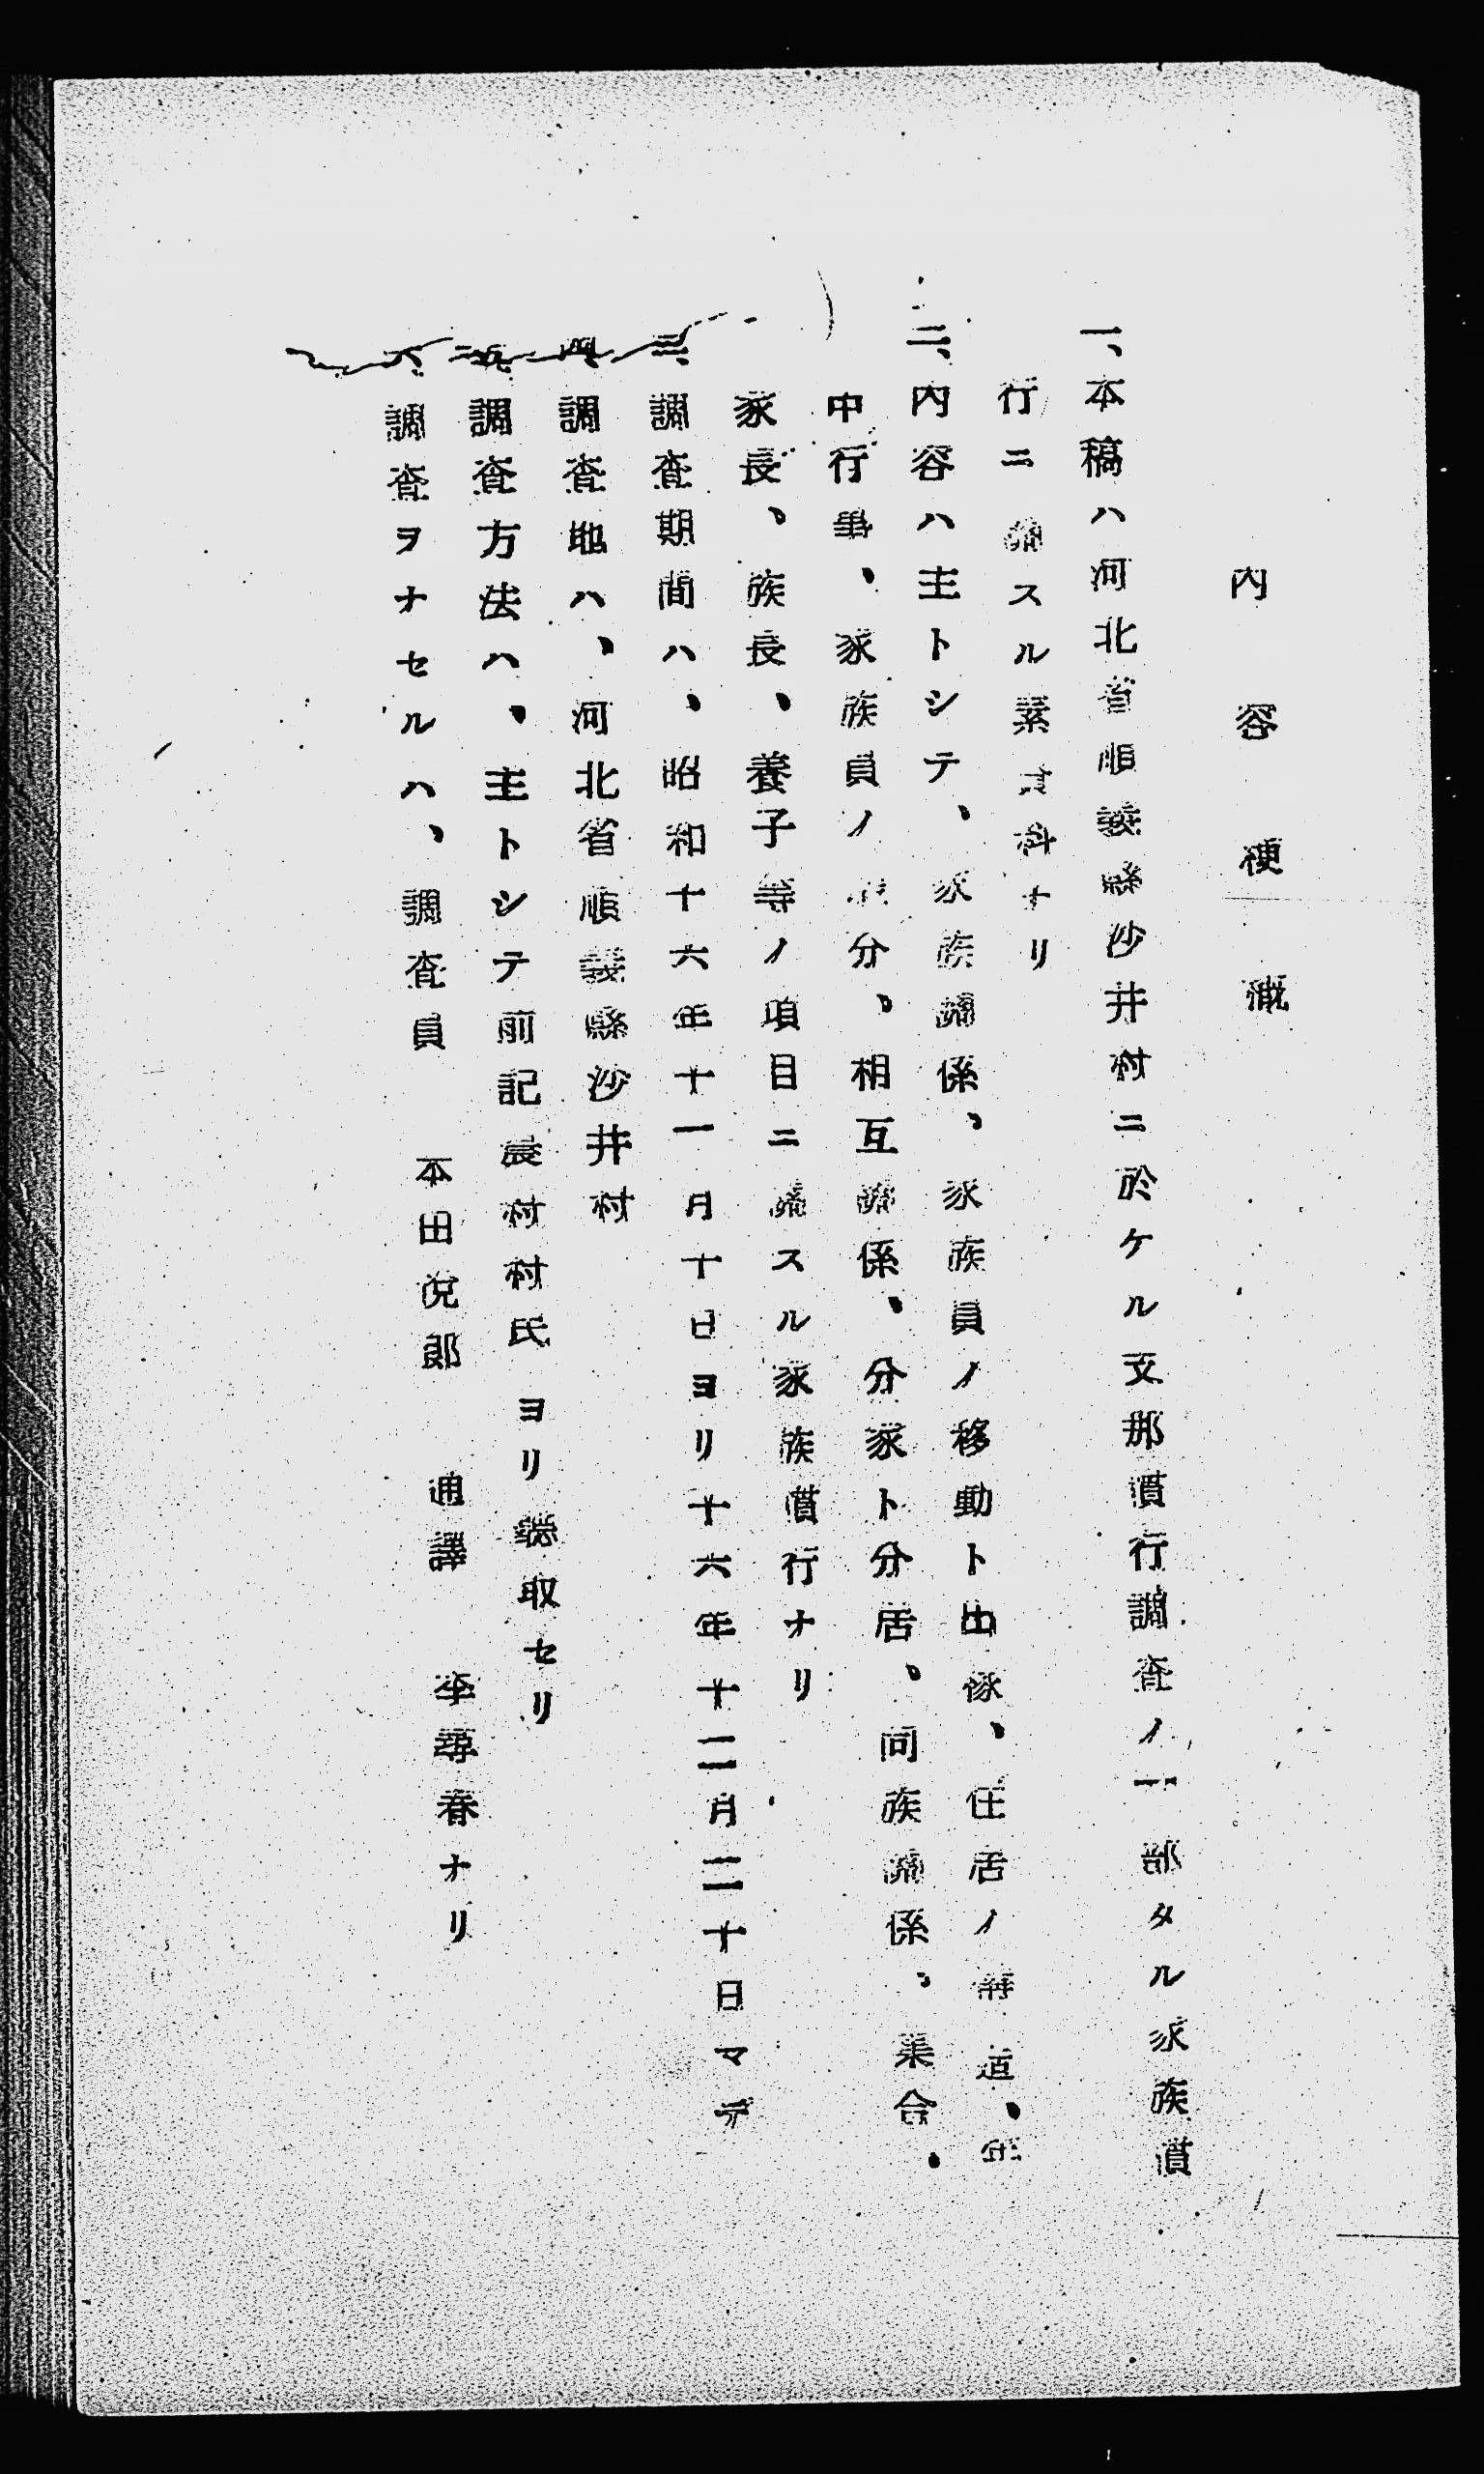 内容梗槪
一、本稿ハ河北省順義縣沙井村ニ於ケル支那慣行調査ノ一部タル家族慣
行ニ關スル素資料ナリ
二、內容ハ主トシテ、家族關係、家族員ノ移動ト出稼、住居ノ構造、年
中行事、家族員ノ身分、相互關係、分家ト分居、同族關係、集合、
家長、族長、養子等ノ項目ニ關スル家族慣行ナリ
三、調査期間ハ、昭和十六年十一月十日ヨリ十六年十二月二十日マデ
四、調査地ハ、河北省順義縣沙井村
五、調査方法ハ、主トシテ前記農村村民ヨリ聽取セリ
六、調査ヲナセルハ、調査員　本田悅郎　通譯　李尋春ナリ